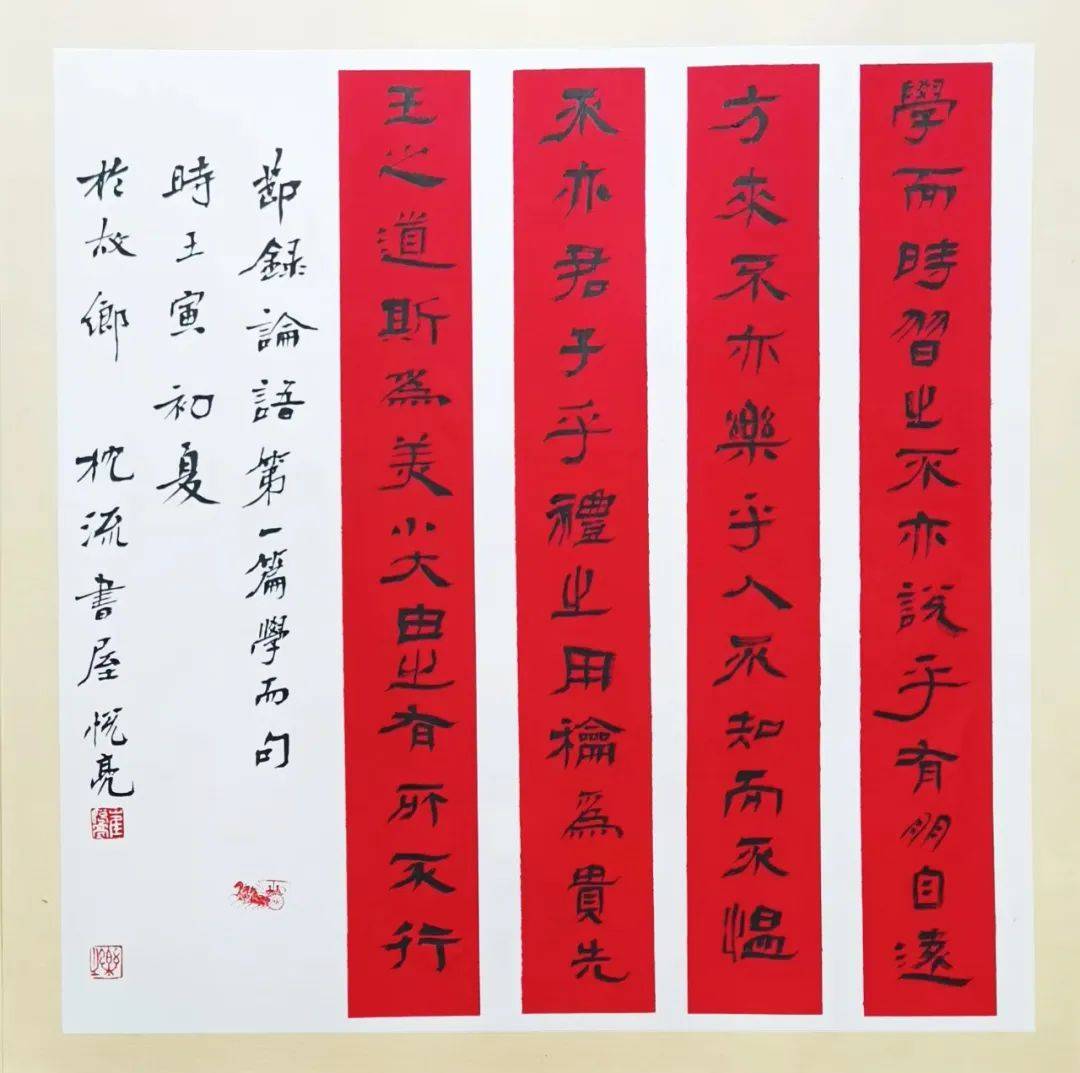 學而時習之不亦說乎有朋自遠
方來不亦樂乎人不知而不愠
不亦君子乎禮之用龢爲貴先
王之道斯爲美小大由之有所不行
節録論語第一篇學而句
時壬寅初夏
於故鄉 枕流書屋亮